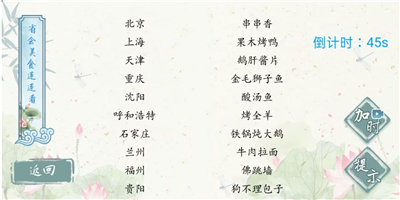 省会美食连连看
北京 串串香
上海 果木烤鸭
天津 鹅肝酱片
重庆 金毛狮子鱼
沈阳 酸汤鱼
呼和浩特 烤全羊
石家庄 铁锅炖大鹅
兰州 牛肉拉面
福州 佛跳墙
贵阳 狗不理包子
倒计时:45s
加时
提示
返回